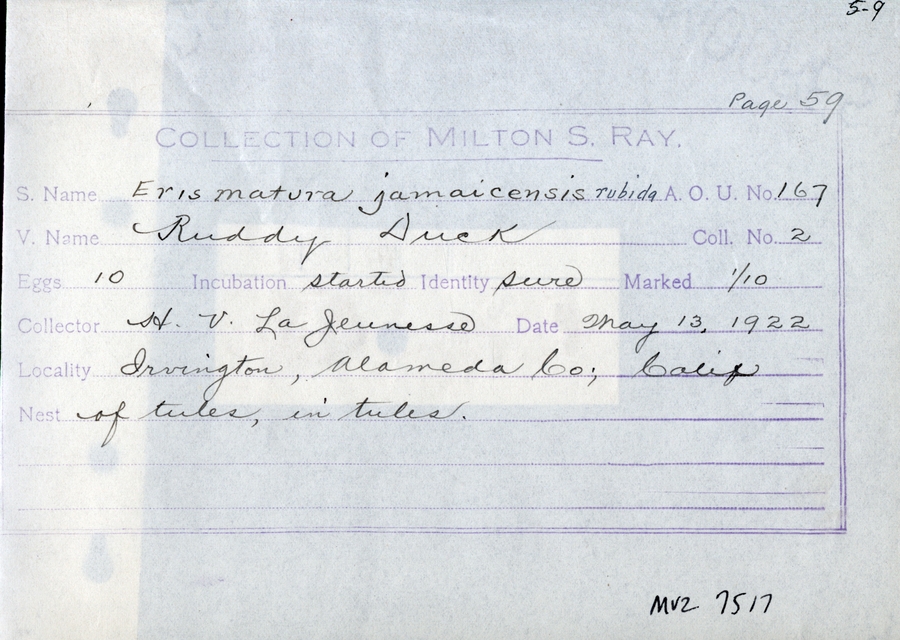 5-9
Page 59
COLLECTION OF MILTON S. RAY.
S. Name Erismatura jamaicensis rubida A. O. U. No. 167
V. Name Ruddy Duck Coll. No. 2
Eggs 10 Incubation started Identity sure Marked 1/10
Collector H. V. La Jeunesse Date May 13, 1922
Locality Irvington, Alameda Co; Calif
Nest of tules, in tules.
MVZ 7517